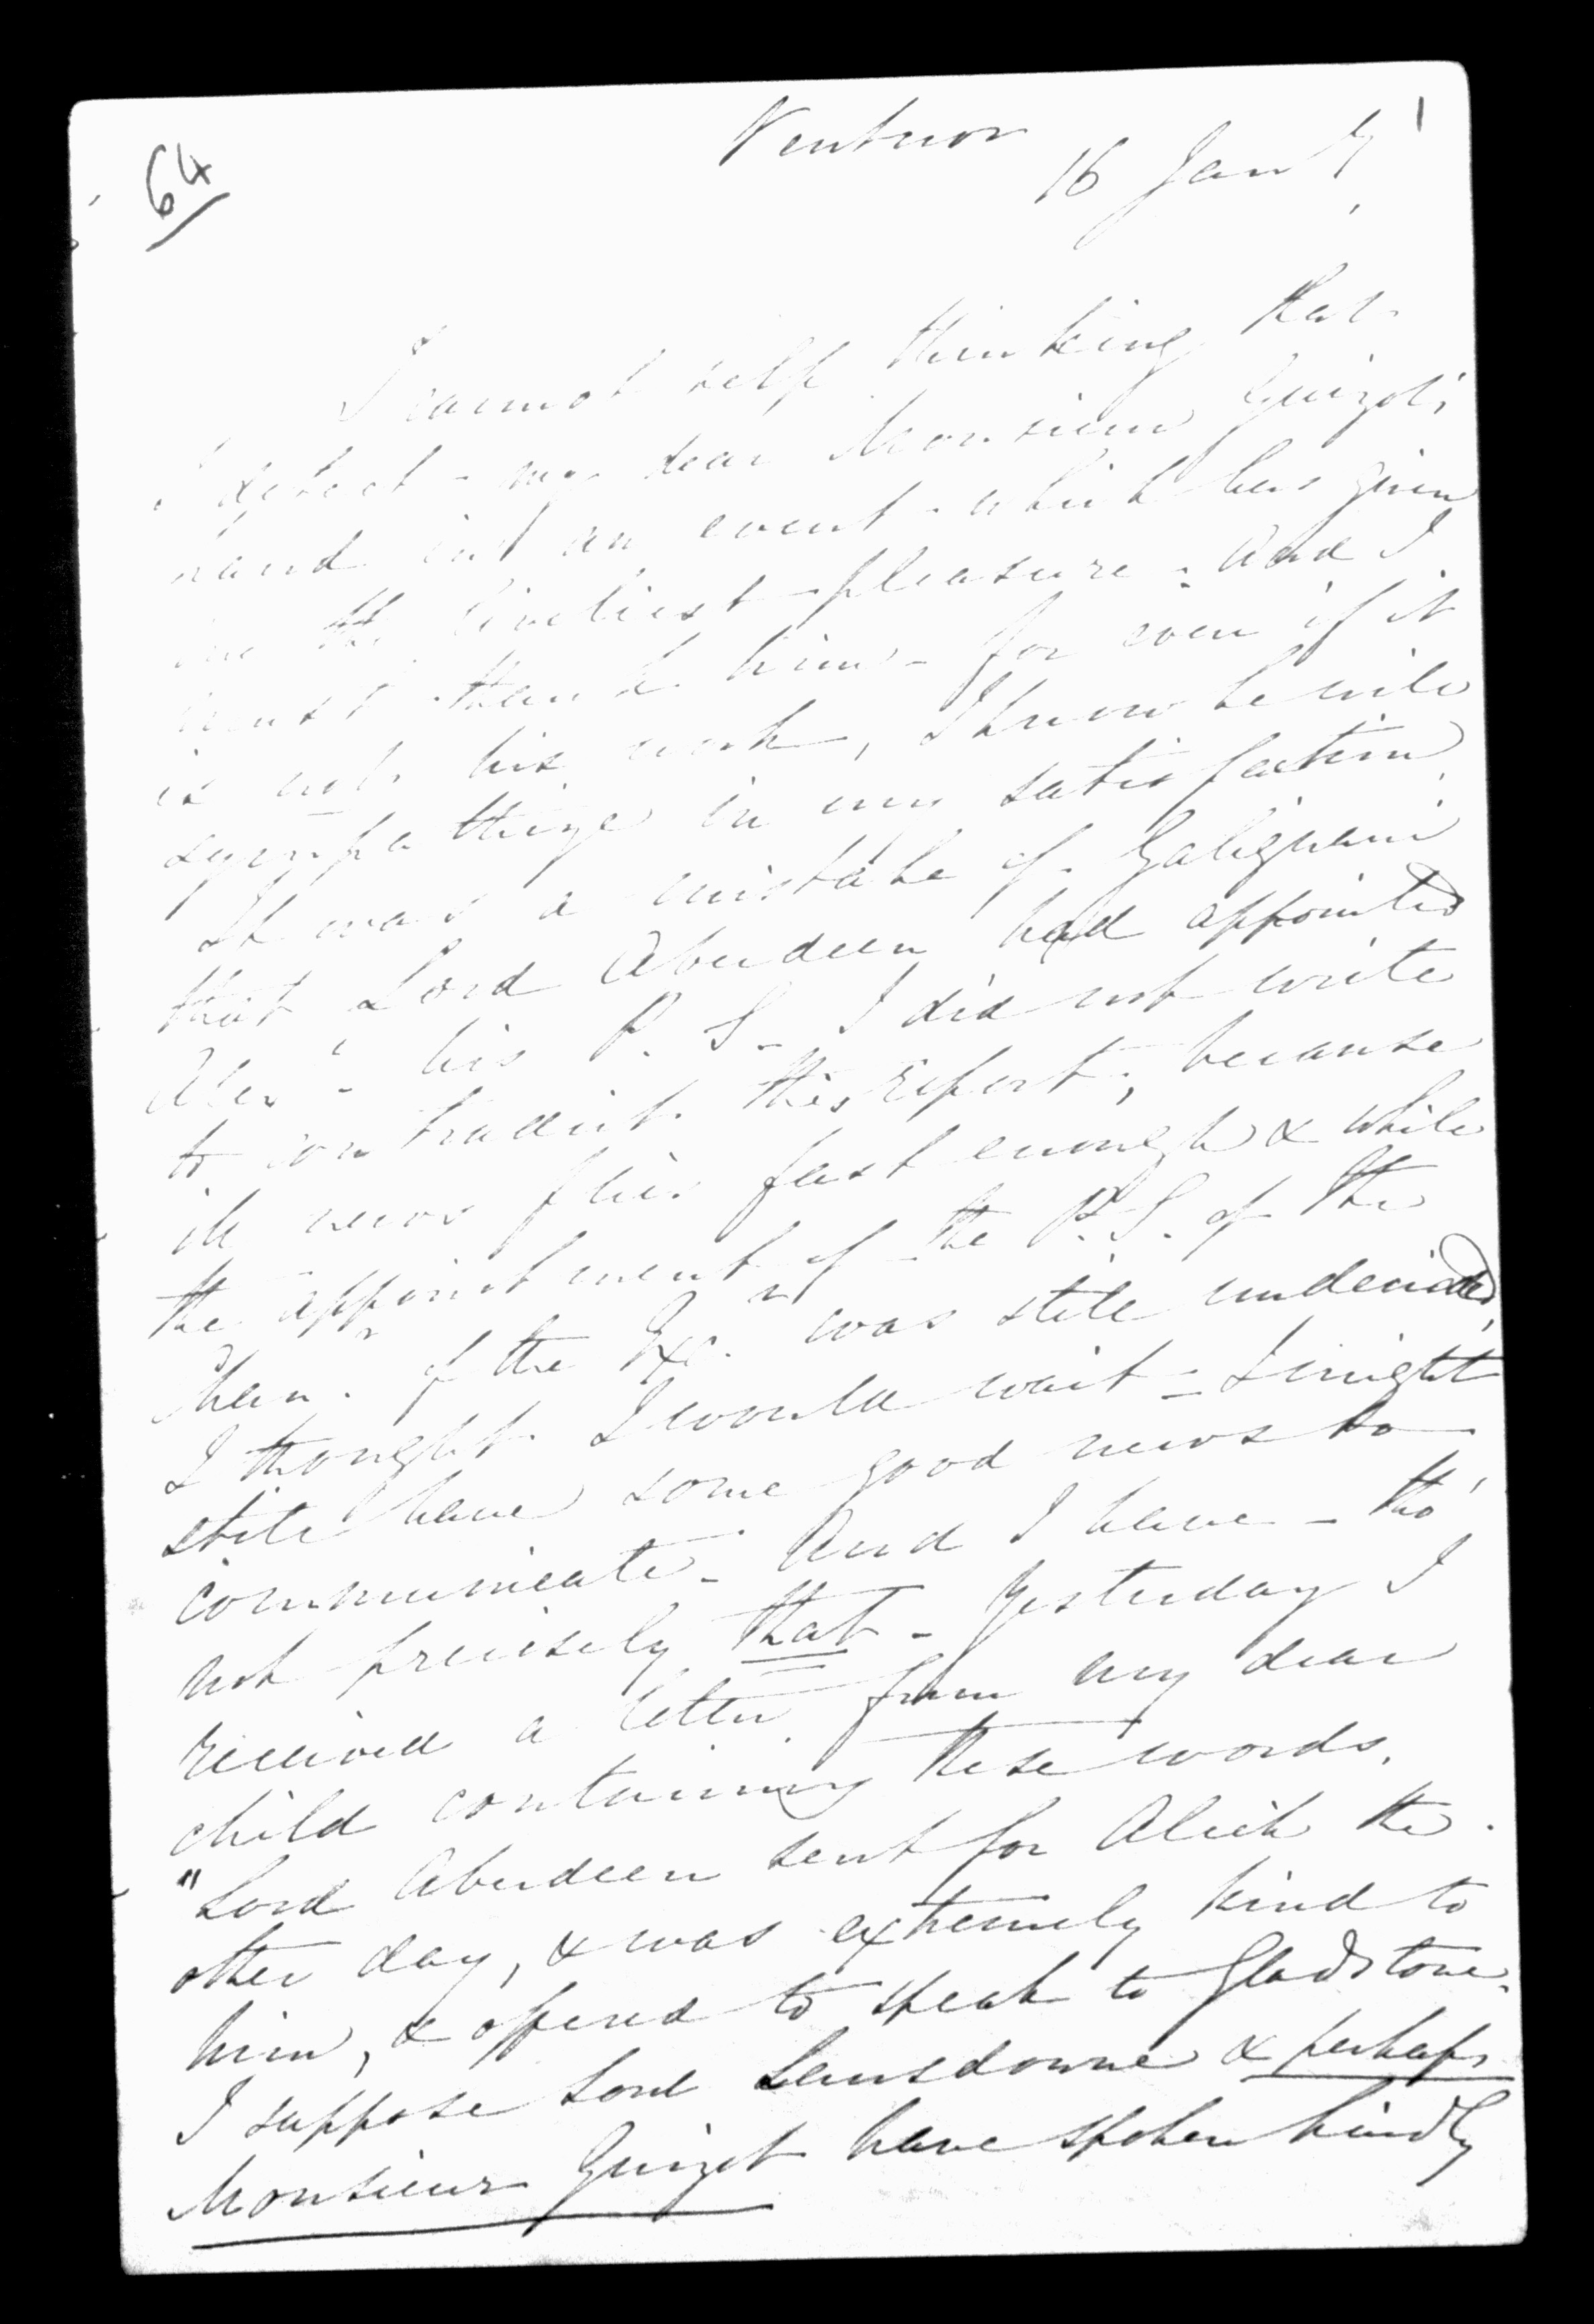 64
Ventnor
16 Jany
I cannot help thinking that
I detect - my dear Monsieur Guizot's
hand in an event - which has given
me the liveliest pleasure - And I
must thank him - for even if it
is not his work, I know he will
sympathize in my satisfaction.
It was a mistake of Galignani
that Lord Aberdeen had appointed
Alexr his P. S. I did not write
to contradict this report, because
ill news flies fast enough & while
the appointment of the P.S. of the
Chanr of the Exr was still undecided,
I thought I would wait - I might
still have some good news to
communicate - And I have - tho'
not precisely that - Yesterday I
received a letter from my dear
child containing these words.
"Lord Aberdeen sent for Alick the
other day, & was extremely kind to
him, & offered to speak to Gladstone.
I suppose Lord Lansdowne & perhaps
Monsieur Guizot have spoken kindly